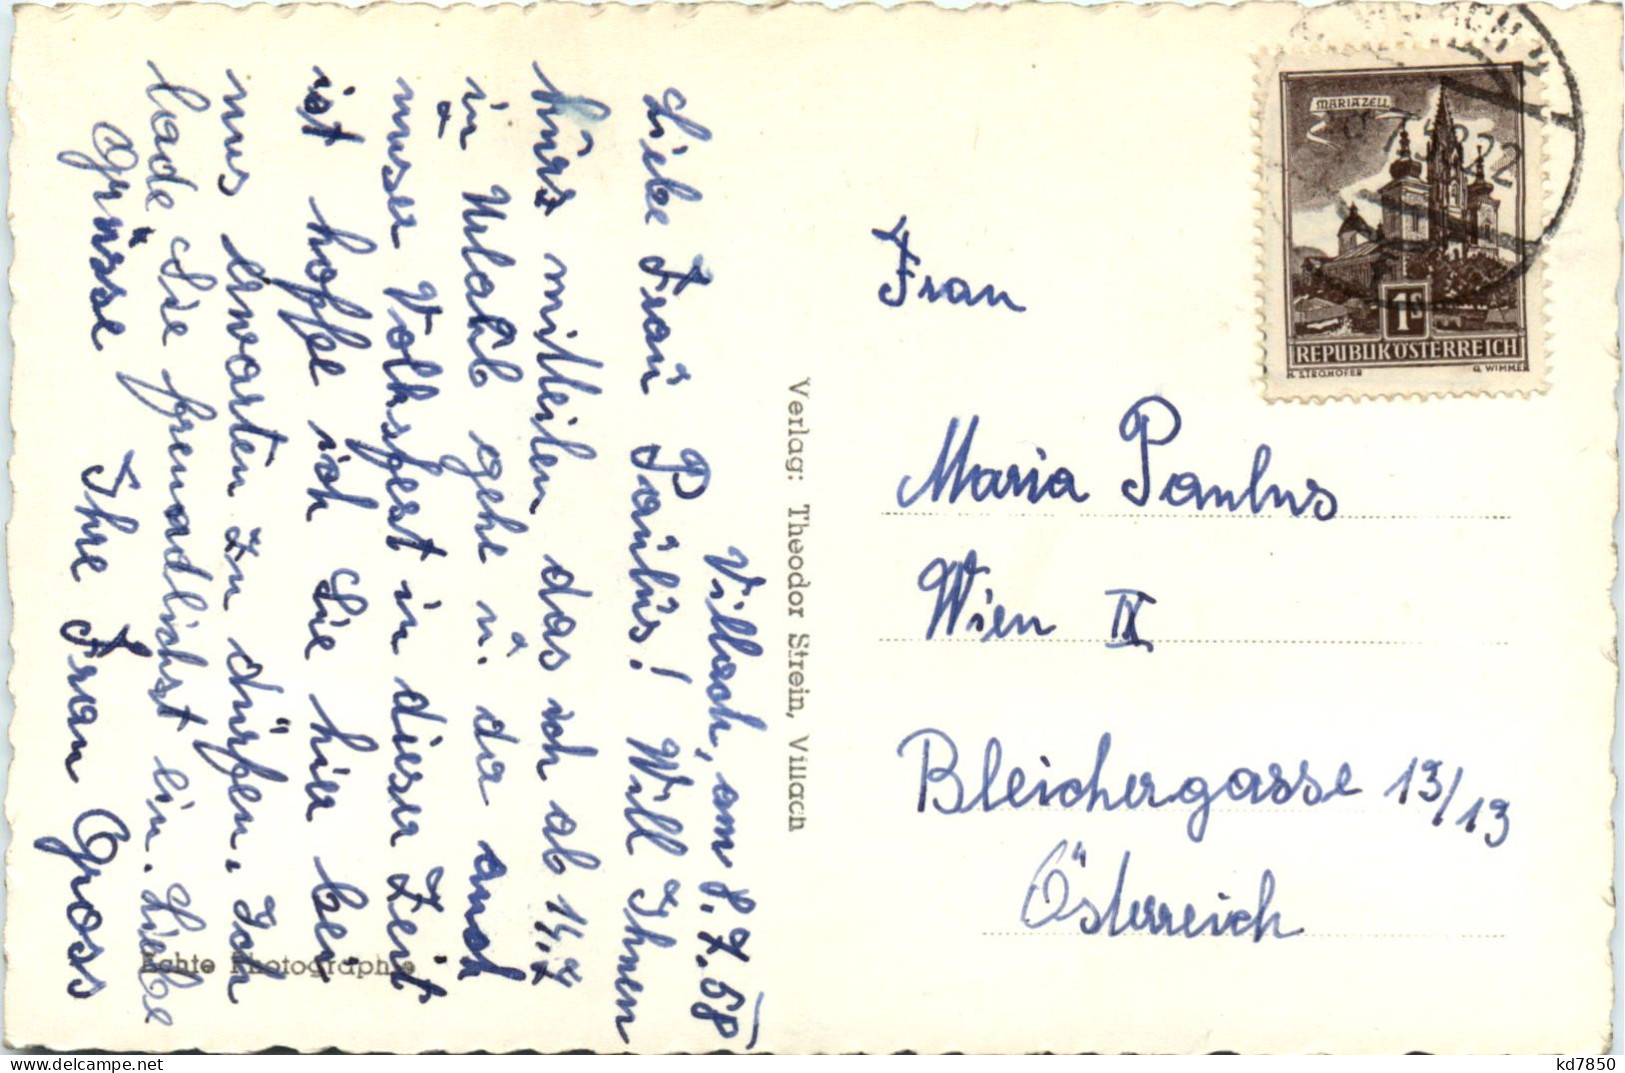 Villach, am 8.7.58
Liebe Frau Paulus! Will Ihnen
kurz mitteilen das ich ab 14.7
in Urlaub gehe u. da auch
unser Volksfest in dieser Zeit
ist hoffe ich Sie hier bei
uns erwarten zu dürfen. Ich
lade Sie freundlichst ein. Liebe
Grüsse Ihre Frau Gross
Echte Photographie
Verlag: Theodor Strein, Villach
MARIAZELL
1S
REPUBLIK ÖSTERREICH
H. STROHOFER G. WIMMER
Frau
Maria Paulus
Wien IX
Bleichergasse 13/13
Österreich
kd7850